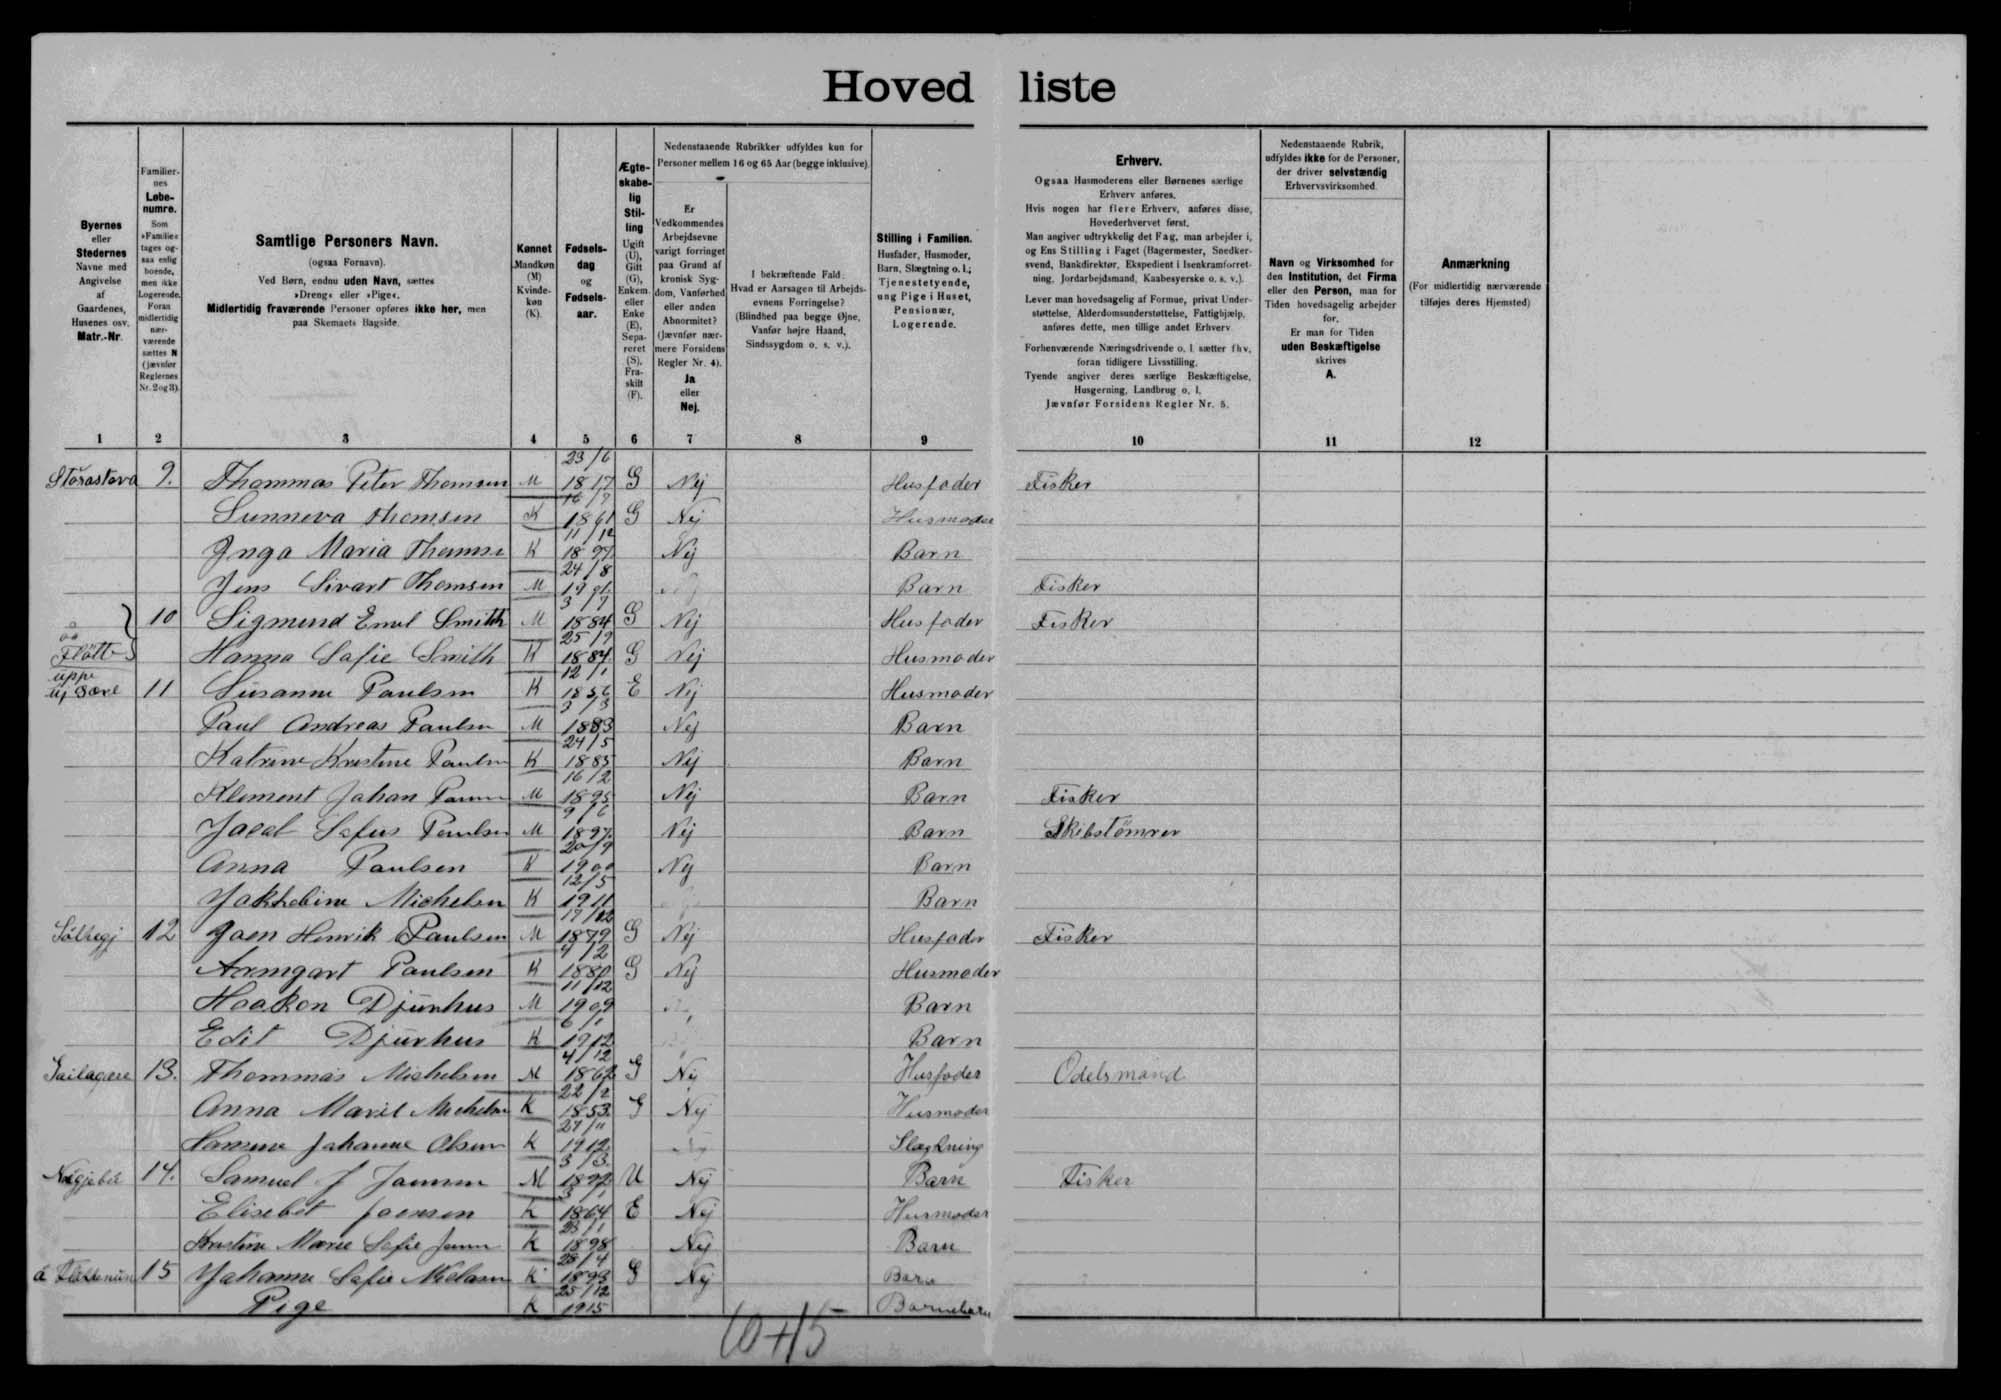 Hovedliste
Byernes
eller
Stedernes
Navne med
Angivelse
af
Gaardenes,
Husenes osv.
Matr.-Nr.
Familier-
nes
Løbe-
numre.
Som
»Familie«
tages og-
saa enlig
boende,
men ikke
Logerende.
Foran
midlertidig
nær-
værende
sættes N
(jævnfør
Reglernes
Nr. 2 og 3).
Samtlige Personers Navn.
(ogsaa Fornavn).
Ved Børn, endnu uden Navn, sættes
»Dreng« eller »Pige«.
Midlertidig fraværende Personer opføres ikke her, men
paa Skemaets Bagside.
Kønnet
Mandkøn
(M)
Kvinde-
køn
(K).
Fødsels-
dag
og
Fødsels-
aar.
Ægte-
skabe-
lig
Stil-
ling
Ugift
(U),
Gift
(G),
Enkem.
eller
Enke
(E),
Sepa-
reret
(S),
Fra-
skilt
(F).
Nedenstaaende Rubrikker udfyldes kun for
Personer mellem 16 og 65 Aar (begge inklusive).
Er
Vedkommendes
Arbejdsevne
varigt forringet
paa Grund af
kronisk Syg-
dom, Vanførhed
eller anden
Abnormitet?
(Jævnfør nær-
mere Forsidens
Regler Nr. 4).
Ja
eller
Nej.
I bekræftende Fald:
Hvad er Aarsagen til Arbejds-
evnens Forringelse?
(Blindhed paa begge Øjne,
Vanfør højre Haand,
Sindssygdom o. s. v.).
Stilling i Familien.
Husfader, Husmoder,
Barn, Slægtning o. l.;
Tjenestetyende,
ung Pige i Huset,
Pensionær,
Logerende.
Erhverv.
Ogsaa Husmoderens eller Børnenes særlige
Erhverv anføres.
Hvis nogen har flere Erhverv, anføres disse,
Hovederhvervet først.
Man angiver udtrykkelig det Fag, man arbejder i,
og Ens Stilling i Faget (Bagermester, Snedker-
svend, Bankdirektør, Ekspedient i Isenkramforret-
ning, Jordarbejdsmand, Kaabesyerske o. s. v.).
Lever man hovedsagelig af Formue, privat Under-
støttelse, Alderdomsunderstøttelse, Fattighjælp,
anføres dette, men tillige andet Erhverv.
Forhenværende Næringsdrivende o. l. sætter fhv.
foran tidligere Livsstilling.
Tyende angiver deres særlige Beskæftigelse,
Husgerning, Landbrug o. l.
Jævnfør Forsidens Regler Nr. 5.
Nedenstaaende Rubrik,
udfyldes ikke for de Personer,
der driver selvstændig
Erhvervsvirksomhed.
Navn og Virksomhed for
den Institution, det Firma
eller den Person, man for
Tiden hovedsagelig arbejder
for.
Er man for Tiden
uden Beskæftigelse
skrives
A.
Anmærkning
(For midlertidig nærværende
tilføjes deres Hjemsted)
1 2 3 4 5 6 7 8 9 10 11 12
Stórastova 9. Thommas Peter Thomsen M 23/6 G Nej Husfader Fisker
Sunneva Thomsen K 1861 G Nej Husmoder
Inga Maria K 11/12 1897 Nej Barn
Jens Sivart Thomsen M 24/8 Barn Fisker
10 Sigmund Emil Smith M 3/7 1884 G Nej Husfader Fisker
Hanna Sofie Smith K 25/9 1884 G Nej Husmoder
uppi 11 Susanne Paulsen K 12/1 1856 E Nej Husmoder
Paul Andreas Paulsen M 3/3 1883 Nej Barn
Katrine Kristine Paulsen K 24/5 1885 Nej Barn
Klement Johan M 16/2 1895 Nej Barn Fisker
Sofus Paulsen M 9/6 1897 Nej Barn Skibstömrer
Anna Paulsen K 20/9 1900 Nej Barn
Michelsen K 12/5 1911 Barn
12 Joen Henrik Paulsen M 17/12 1879 G Nej Husfader Fisker
Armgart Paulsen K 4/2 1880 G Nej Husmoder
Haakon Djurhus M 11/12 1909 Barn
Edit Djurhus K 6/1 1912 Barn
13. Thommas Michelsen M 4/12 G Nej Husfader Odelsmand
Anna Michelsen K 22/2 1853 G Nej Husmoder
Johanne Olsen K 27/11 1912 Slægkning
14. Samuel J Joensen M 3/3 U Nej Barn Fisker
Elisebet Joensen K 3/1 1864 E Nej Husmoder
Kristine Marie Sofie K 23/1 1898 Nej Barn
15 Johanne Sofie K 28/4 1893 G Nej Barn
Pige K 25/12 1915 Barnebarn
10+15